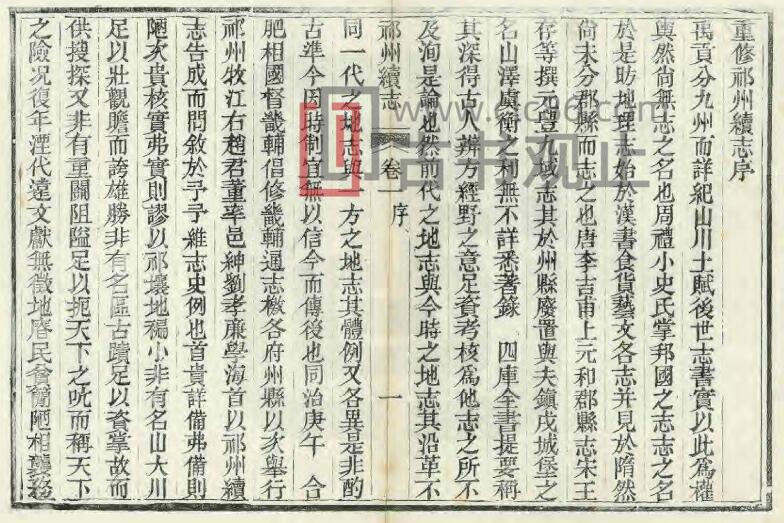 重修祁州續志序
禹貢分九州而詳紀山川土賦後世志書實以此為權
輿然尚無志之名也周禮小史氏掌邦國之志志之名
於是昉地理志始於漢書食貨藝文各志并見於隋然
尚未分郡縣而志之也唐李吉甫上元和郡縣志宋王
存等撰元豐九域志其於州縣廢置與夫鎮戍城堡之
名山澤虞衡之利無不詳悉著錄 四庫全書提要稱
其深得古人辨方經野之意足資考核為他志之所不
及洵是論也然前代之地志與今時之地志其沿革不
祁州續志 卷一 序 一
同一代之地志與 方之地志其體例又各異是非酌
古準今因時制宜無以信今而傳後也同治庚午 合
肥相國督畿輔倡修畿輔通志檄各府州縣以次舉行
祁州牧江右趙君董率邑紳劉孝廉學海首以祁州續
志告成而問敘於予予維志史例也首貴詳備弗備則
陋次貴核實弗實則謬以祁壤地褊小非有名山大川
足以壯觀瞻而誇雄勝非有名區古蹟足以資掌故而
供搜探又非有重關阻隘足以扼天下之吭而稱天下
之險況復年湮代遠文獻無徵地瘠民貧簡陋相襲務
www.gc06.com
古书观止